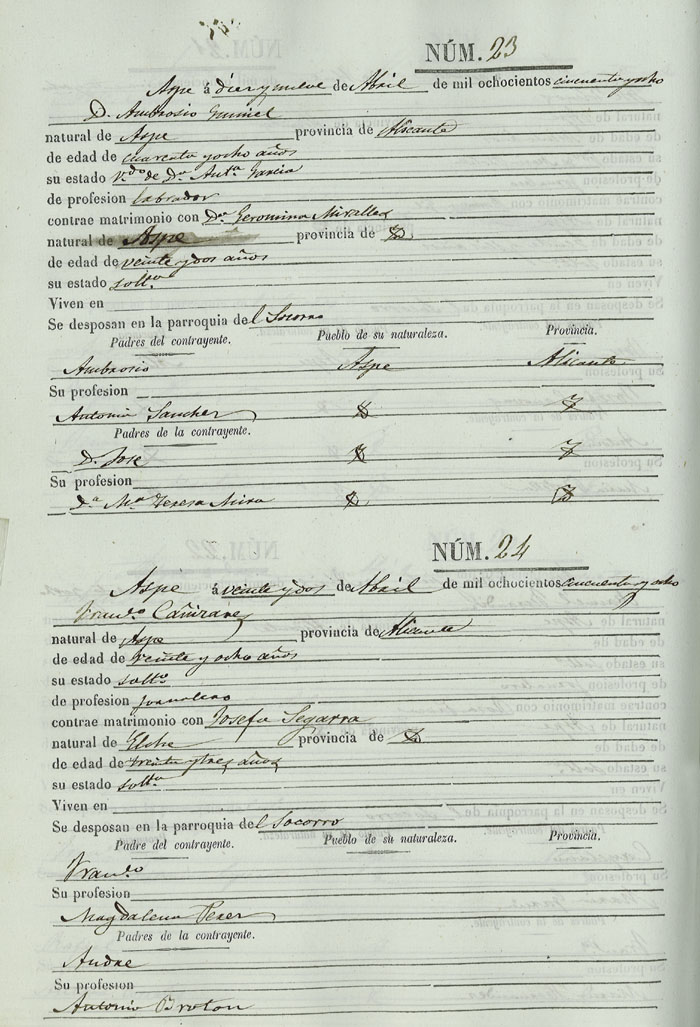 NÚM. 23
Aspe á diez y nueve de Abril de mil ochocientos cincuenta y ocho
D. Ambrosio
natural de Aspe provincia de Alicante
de edad de cuarenta y ocho años
su estado V.do de D.ª Ant.ª Garcia
de profesion Labrador
contrae matrimonio con D.ª Geronima Miralles
natural de Aspe provincia de
de edad de veinte y dos años
su estado solt.ª
Viven en
Se desposan en la parroquia del Socorro
Padres del contrayente. Pueblo de su naturaleza. Provincia.
Ambrosio Aspe Alicante
Su profesion
Antonia Sanchez
Padres de la contrayente.
D. Jose
Su profesion
D.ª M.ª Teresa Mira
NÚM. 24
Aspe á veinte y dos de Abril de mil ochocientos cincuenta y ocho
Fran.co Cañizares
natural de Aspe provincia de Alicante
de edad de veinte y ocho años
su estado solt.o
de profesion jornalero
contrae matrimonio con Josefa Segarra
natural de Elche provincia de
de edad de treinta y tres años
su estado solt.ª
Viven en
Se desposan en la parroquia del Socorro
Padre del contrayente. Pueblo de su naturaleza. Provincia.
Fran.co
Su profesion
Magdalena Perez
Padres de la contrayente.
Andre
Su profesion
Antonia Broton